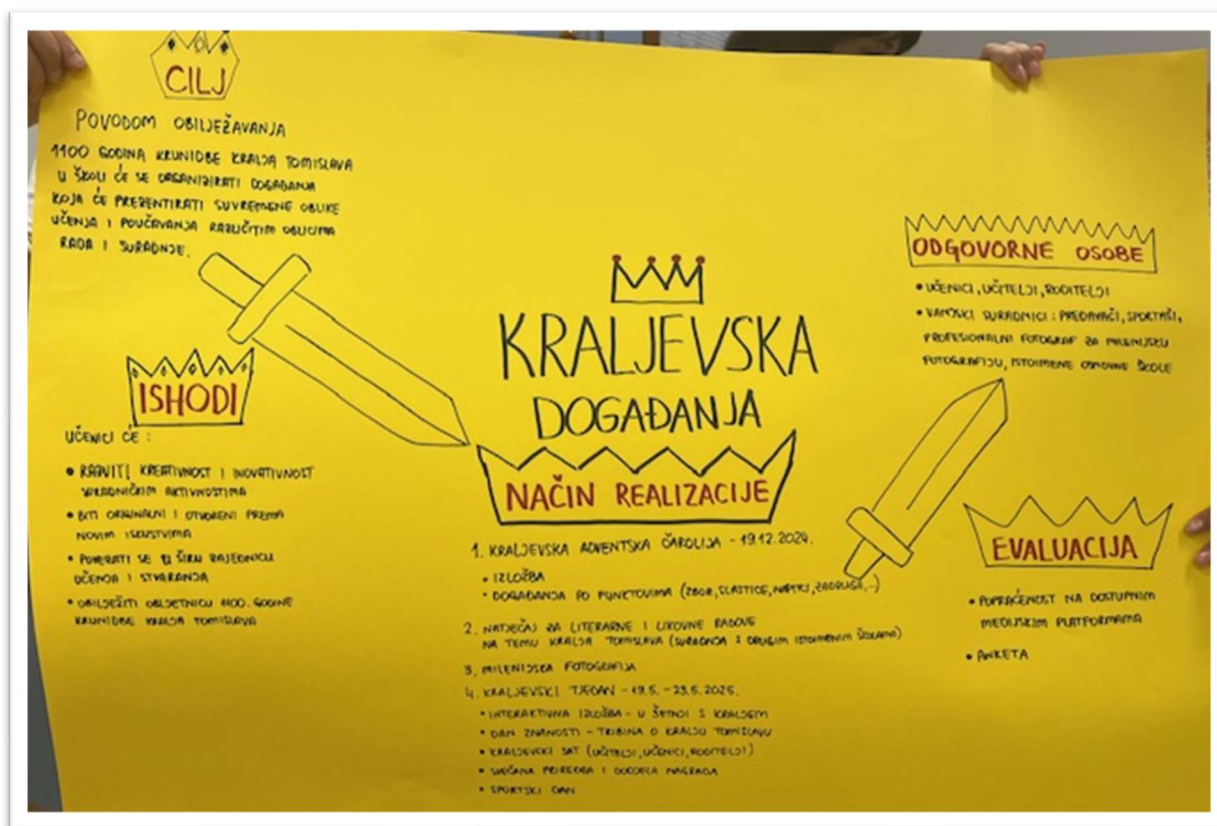 CILJ
POVODOM OBILJEŽAVANJA
1100 GODINA KRUNIDBE KRALJA TOMISLAVA
U ŠKOLI ĆE SE ORGANIZIRATI DOGAĐANJA
KOJA ĆE PREZENTIRATI SUVREMENE OBLIKE
UČENJA I POUČAVANJA RAZLIČITIM OBLICIMA
RADA I SURADNJE.
ISHODI
UČENICI ĆE :
• RAZVITI KREATIVNOST I INOVATIVNOST
SURADNIČKIM AKTIVNOSTIMA
• BITI ORIGINALNI I OTVORENI PREMA
NOVIM ISKUSTVIMA
• POVEZATI SE U ŠIRU ZAJEDNICU
UČENJA I STVARANJA
• OBILJEŽITI OBLJETNICU 1100. GODINE
KRUNIDBE KRALJA TOMISLAVA
KRALJEVSKA
DOGAĐANJA
NAČIN REALIZACIJE
1. KRALJEVSKA ADVENTSKA ČAROLIJA - 19.12.2024.
• IZLOŽBA
• DOGAĐANJA PO PUNKTOVIMA (ZBOR, SLASTICE, NAPITCI, ZADRUGA,..)
2. NATJEČAJ ZA LITERARNE I LIKOVNE RADOVE
NA TEMU KRALJA TOMISLAVA (SURADNJA S DRUGIM ISTOIMENIM ŠKOLAMA)
3. MILENIJSKA FOTOGRAFIJA
4. KRALJEVSKI TJEDAN - 19.5. - 23.5.2025.
• INTERAKTIVNA IZLOŽBA - U ŠETNJI S KRALJEM
• DAN ZNANOSTI - TRIBINA O KRALJU TOMISLAVU
• KRALJEVSKI SAT (UČITELJI, UČENICI, RODITELJI)
• SVEČANA PRIREDBA I DODJELA NAGRADA
• SPORTSKI DAN
ODGOVORNE OSOBE
• UČENICI, UČITELJI, RODITELJI
• VANJSKI SURADNICI : PREDAVAČI, SPORTAŠI,
PROFESIONALNI FOTOGRAF ZA MILENIJSKU
FOTOGRAFIJU, ISTOIMENE OSNOVNE ŠKOLE
EVALUACIJA
• POPRAĆENOST NA DOSTUPNIM
MEDIJSKIM PLATFORMAMA
• ANKETA